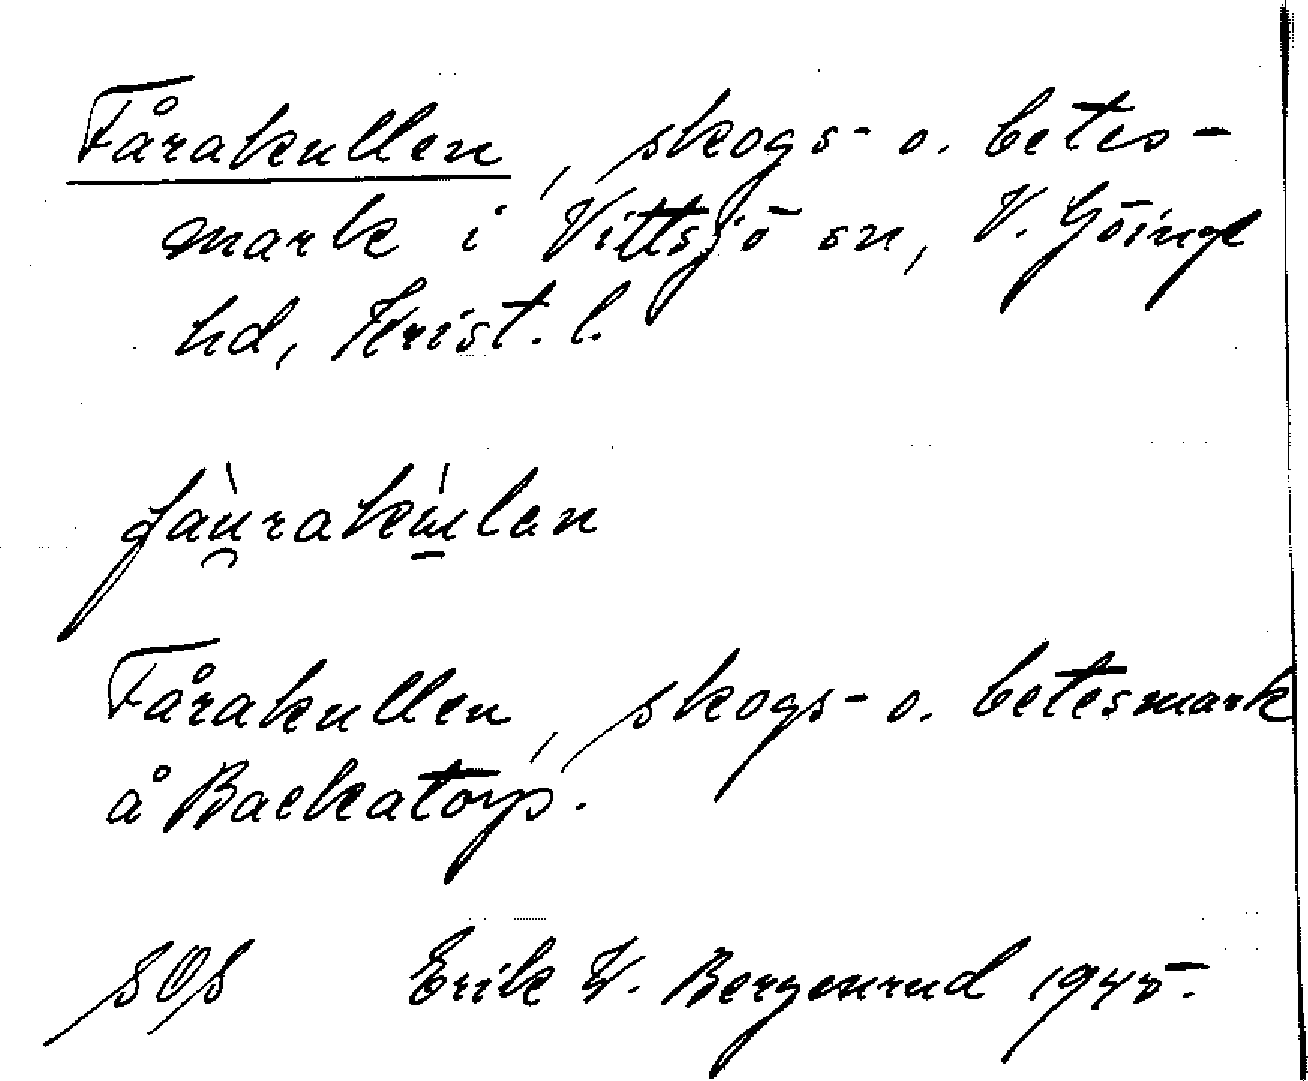 Fårakullen, skogs- o. betes-
mark i Vittsjö sn, V. Göinge
hd, Krist. l.
Fårakullen, skogs- o. betesmark
å Backatorp.
SOS Erik W. Bergenrud 1945.